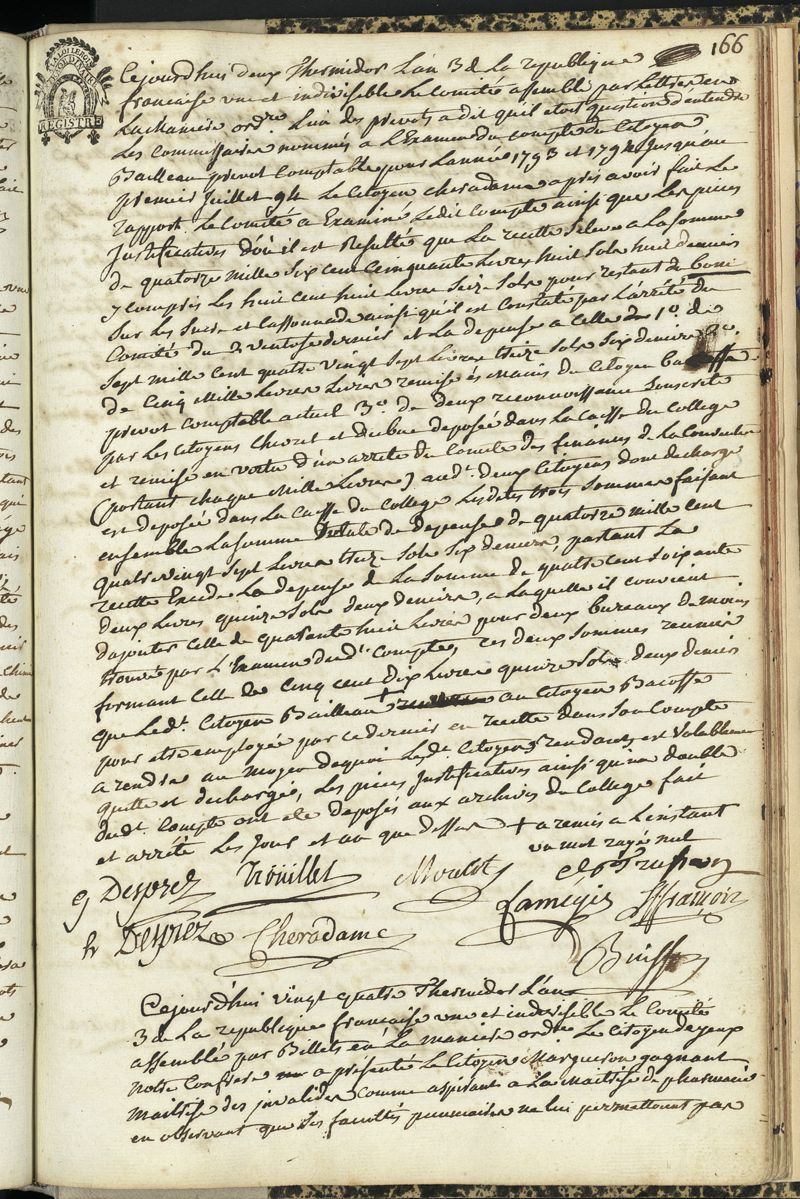 166
LA LOI LE ROI
REGISTRE
Cejourdhui deux Thermidor L'an 3 de La republique
francaise une et indivisible Le Comité assemblé par Lettres en
La maniere ordre L'un des prevots a dit quil etoit question d'entendre
Les Commissaires nommés a L'Examen du compte du Citoyen
Bailleau prevot Comptable pour L'année 1793 et 1794 Jusqu'au
premier Juillet 94 Le Citoyen cheradame après avoir fait Le
rapport. Le Comité a Examiné Ledit Compte ainsi que Les pieces
Justificatives D'où il est Resulté que La recette s'eleve a La somme
de quatorze mille Six cent Cinquante Livres huit Sols huit deniers
y compris Les huit cent huit Livres Seize Sols pour restant de boni
Sur Les Sucre et Cassonnade ainsi quil est Constaté par L'arrêté du
Comité du 2 ventose dernier et La depense a Celle 1o. de
Sept mille Cent quatre vingt Sept Livres treize Sols Six deniers 2o.
de Cinq Mille Livres Livres remise és Mains du Citoyen Bacoffe
prevot Comptable actuel 3o. de deux reconnoissance Souscrite
par Les Citoyens Chevret et Dubuc deposée dans La Caisse du College
et remise en vertu d'un arrete du Comite des finances de La Convention
(portant chaque Mille Livres) aud.t deux Citoyens dont decharge
est deposée dans La Caisse du College Lesdites trois Sommes faisant
ensemble La Somme totale de depense de quatorze mille cent
quatre vingt Sept Livres treize Sols Six deniers, partant La
recette Excede La depense de La Somme de quatre cent Soixante
deux Livres quinze Sols deux deniers, a Laquelle il convient
d'ajouter Celle de quarante huit Livres pour deux bureaux de moins
trouvé par L'Examen dud.t Compte, ces deux Sommes reunies
formant Celle de Cinq cent Dix Livres quinze Sols deux deniers
que Led.t Citoyen Bailleau + au Citoyen Bacoffe
pour etre employée par ce dernier en recette dans Son Compte
a rendre au moyen dequoi Led.t Citoyen rendant est Valablement
quitte et dechargé, Les pieces Justificatives ainsi qu'un double
dud.t Compte ont eté deposés aux archives du College fait
et arrêté Les Jour et an que dessus + a remis a L'instant
un mot rayé nul
g Desprez Trouillet Moulot
Lamegie ffrancois
h Desprez Cheradame
Buisson
Cejourd'hui vingt quatre Thermidor L'an
3 de La republique française une et indivisible Le Comité
assemblé par Billets en La maniere ordre Le Citoyen deyeux
notre Confrere a présenté Le Citoyen Marqueron gagnant
maitrise des invalides comme aspirant a La maitrise de pharmacie
en observant que Ses facultés pecuniaires ne lui permettant pas